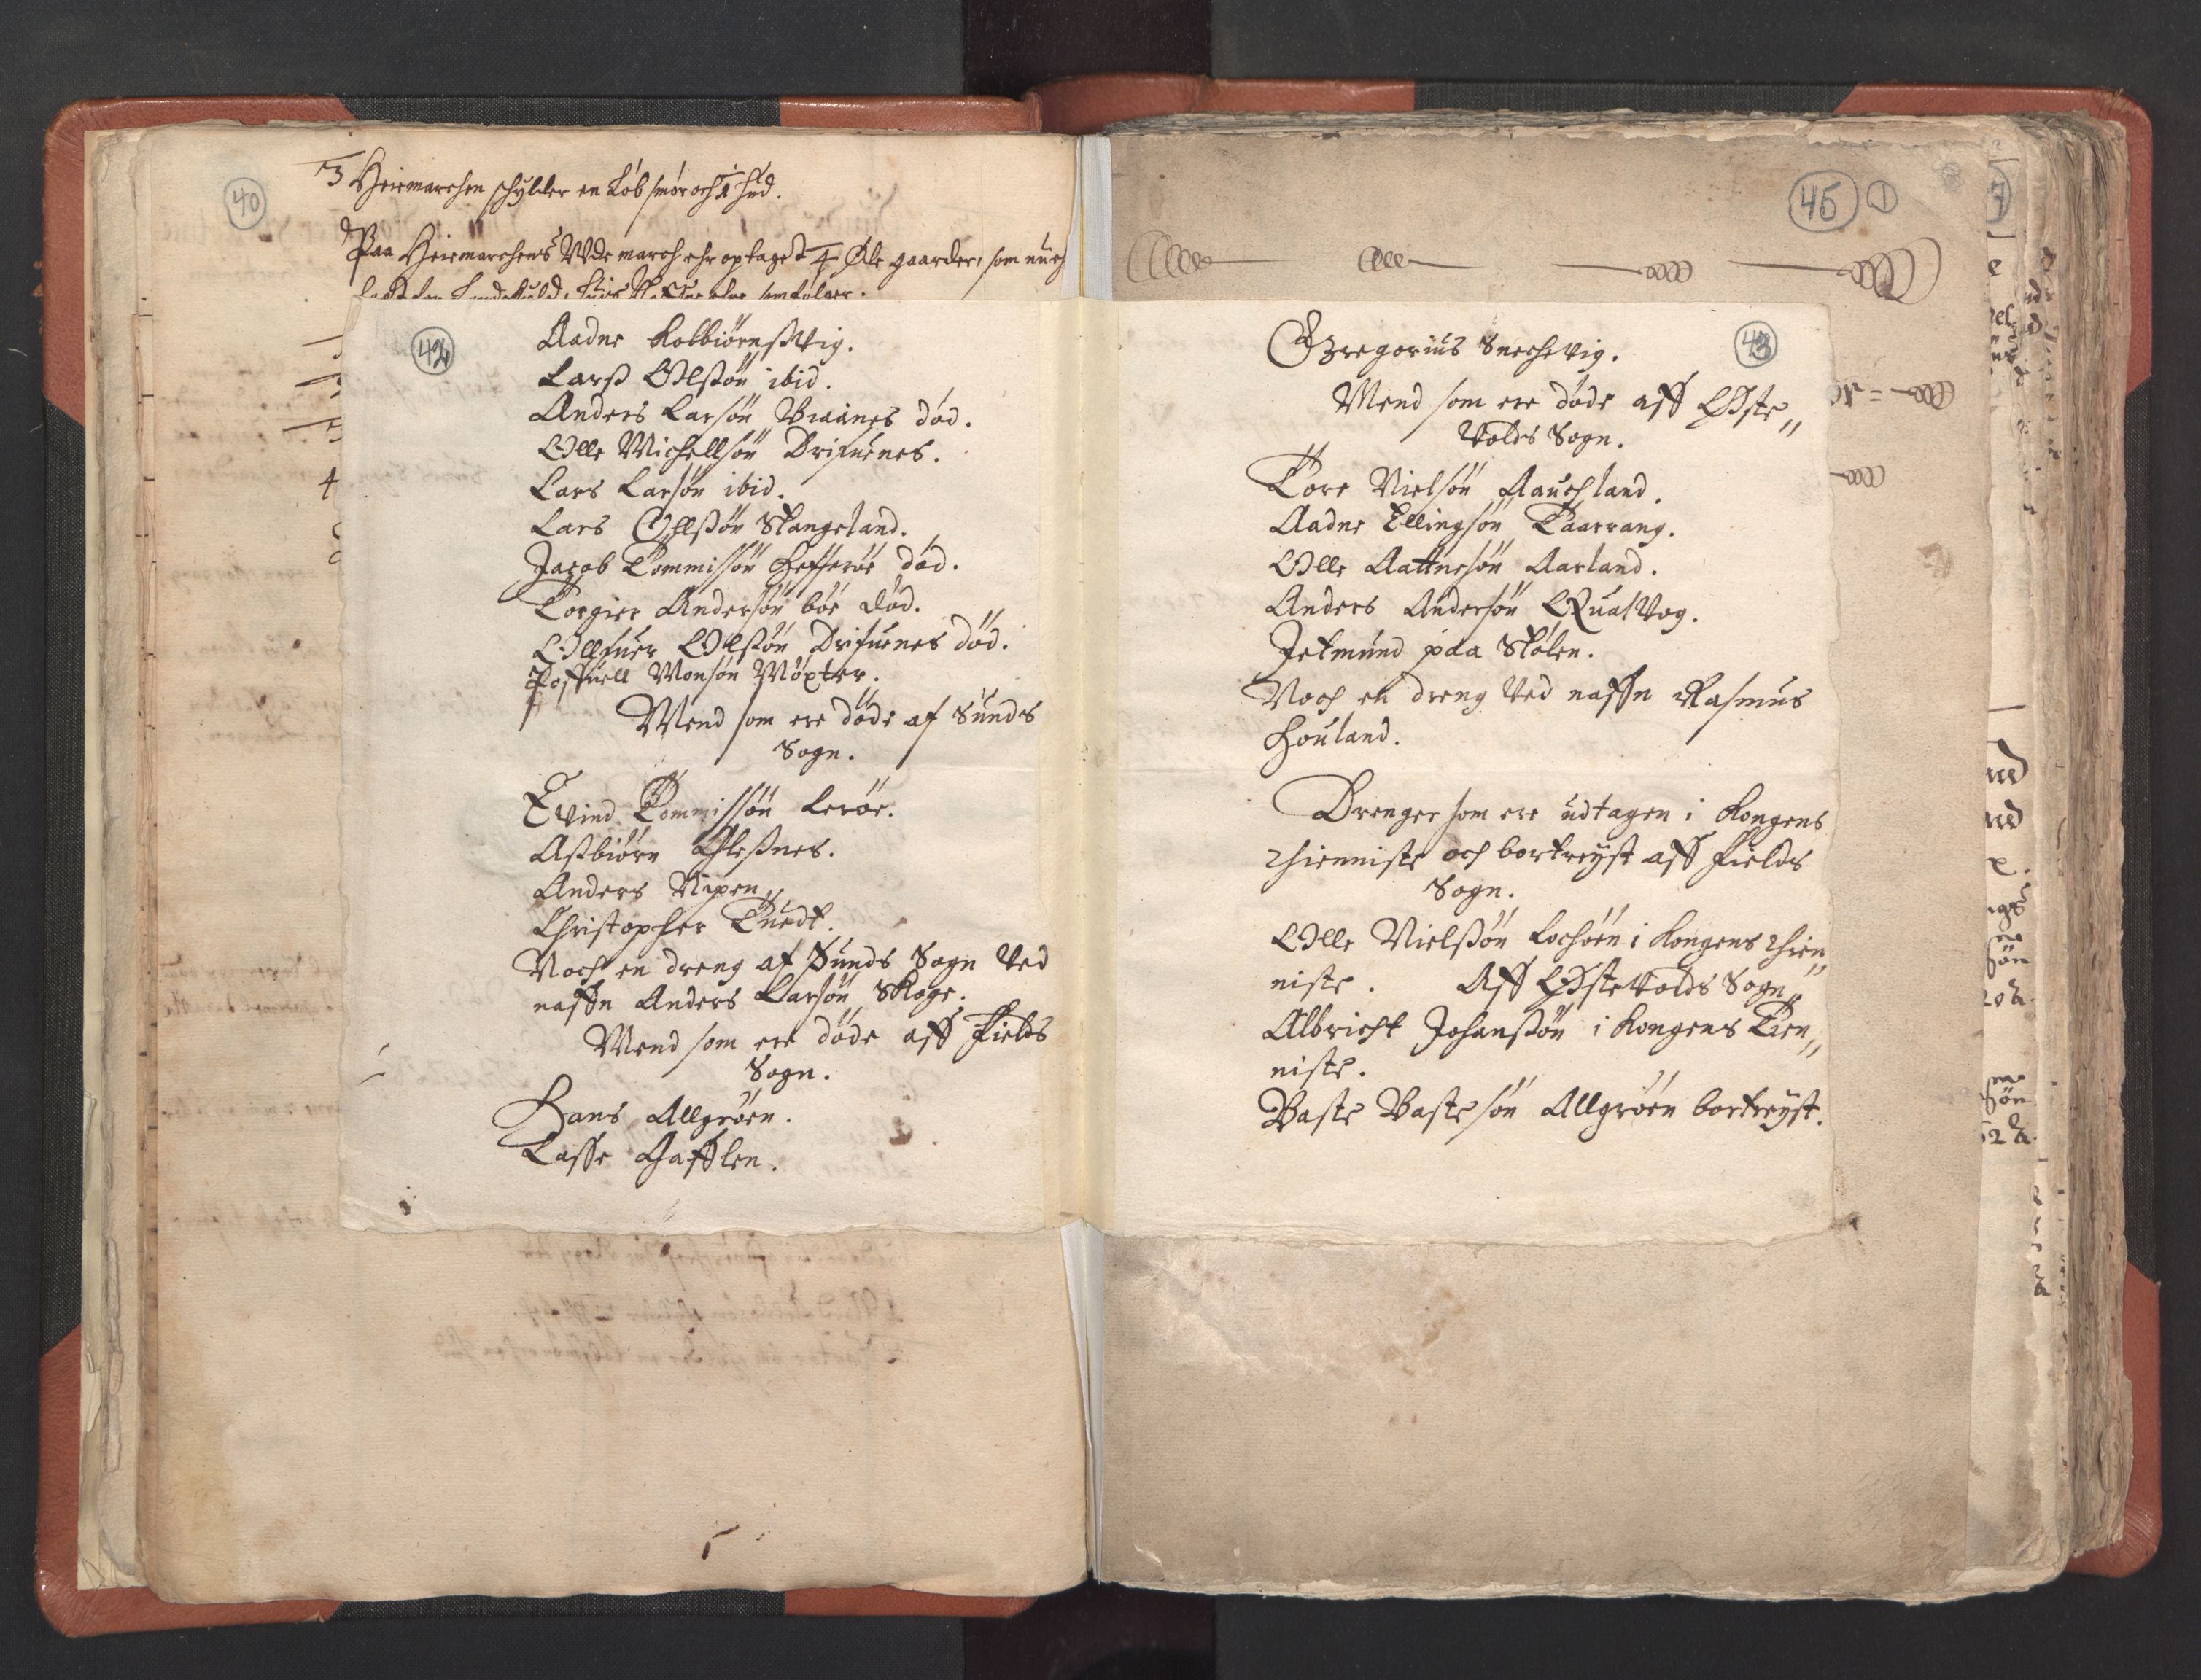 40
Heiemarchen schylder en Løb smør och 1 hud.
Paa Heiemarchens Wdemarch ehr optaget 4 Øde gaarder, som nu ehr
42
Aadne Kolbiørnsßvig.
Larß Olßøn ibid.
Anders Larsøn Biaanes død.
Olle Michellsøn Drifuenes.
Lars Larsøn ibid.
Lars Ollßøn Stangeland.
Jacob Tommissøn Hefferøe død.
Torgier Andersøn bøe død.
Ollfuer Olßøn Drifuenes død.
Poffuell Monsøn Møxter.
Mend som ere døde af Sunds
Sogn.
Evind Tommissøn Lerøe.
Aßbiørn Gleßnes.
Anders Nipen
Christopher Tuedt.
Noch en dreng af Sunds Sogn Ved
naffn Anders Larsøn Skoge.
Mend som ere døde aff Fields
Sogn.
Hans Allgrøen.
Lasse Gafflen.
45 1
Gregorius Snechevig.
43
Mend som ere døde aff Øste„
Volds Sogn.
Tore Nielsøn Hauchland.
Aadne Ellingsøn Taarrang.
Olle Aattnesøn Aarland.
Anders Andersøn QualVog.
Jetmund paa Stølen.
Noch en dreng Ved naffn Rasmus
Houland.
Drenger som ere udtagen i Kongens
thienniste och bortreyst aff Fields
Sogn.
Olle Nielßøn Lochøen i Kongens thien„
niste. Aff ØsteVolds Sogn„
Albricht Johanßøn i Kongens Tien„
niste.
Baste Bastesøn Allgrøen bortreyst.